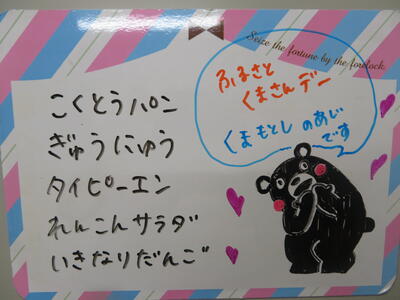 Seize the fortune by the forelock.
ふるさと
くまさんデー
くまもとし のあじ
です
こくとうパン
ぎゅうにゅう
タイピーエン
れんこんサラダ
いきなりだんご